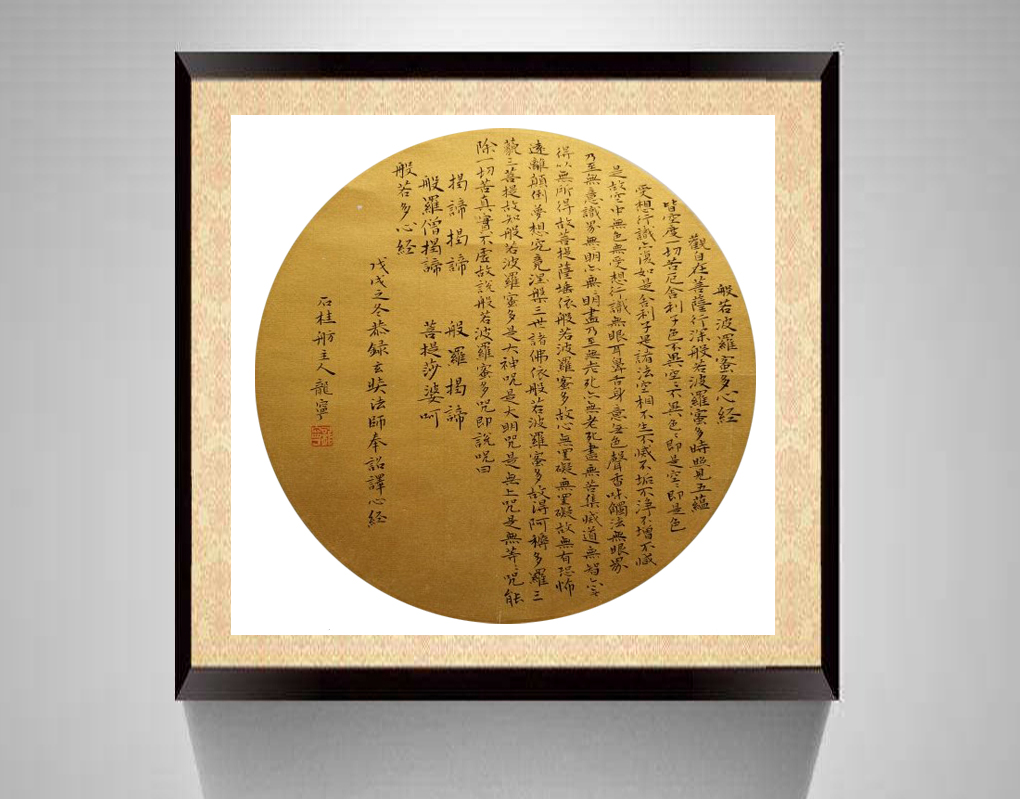 般若波羅蜜多心経
觀自在菩薩行深般若波羅蜜多時照見五蘊
皆空度一切苦厄舍利子色不異空〻不異色〻即是空〻即是色
受想行識亦復如是舍利子是諸法空相不生不滅不垢不淨不增不減
是故空中無色無受想行識無眼耳鼻舌身意無色聲香味觸法無眼界
乃至無意識界無明亦無明盡乃至無老死亦無老死盡無苦集滅道無智亦無
得以無所得故菩提薩埵依般若波羅蜜多故心無罣礙無罣礙故無有恐怖
遠離顛倒夢想究竟涅槃三世諸佛依般若波羅蜜多故得阿耨多羅三
藐三菩提故知般若波羅蜜多是大神咒是大明咒是無上咒是無等〻咒能
除一切苦真實不虛故說般若波羅蜜多咒即說咒曰
揭諦揭諦 般羅揭諦
般羅僧揭諦 菩提莎婆呵
般若多心経
戊戌之冬恭録玄奘法師奉詔譯心経
石桂舫主人龍寧